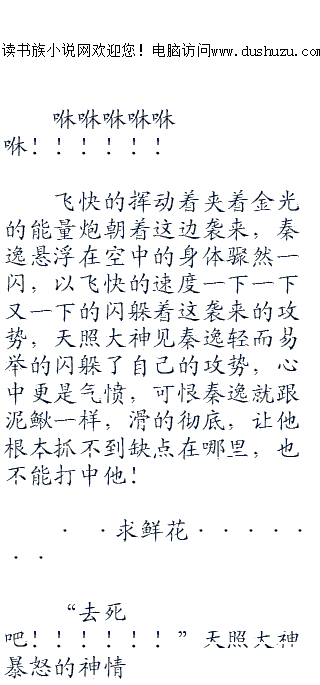 读书族小说网欢迎您！电脑访问www.dushuzu.com
咻咻咻咻咻
咻！！！！！！
飞快的挥动着夹着金光
的能量炮朝着这边袭来，秦
逸悬浮在空中的身体骤然一
闪，以飞快的速度一下一下
又一下的闪躲着这袭来的攻
势，天照大神见秦逸轻而易
举的闪躲了自己的攻势，心
中更是气愤，可恨秦逸就跟
泥鳅一样，滑的彻底，让他
根本抓不到缺点在哪里，也
不能打中他！
· ·求鲜花· · · · ·
· ·
“去死
吧！！！！！！”天照大神
暴怒的神情